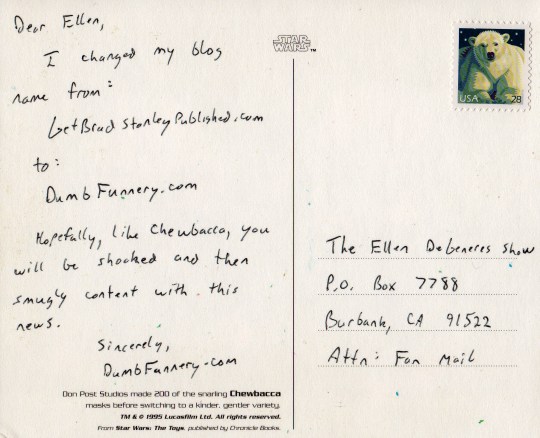 Dear Ellen,
I changed my blog
name from:
GetBradStanleyPublished.com
to:
DumbFunnery.com
Hopefully, like Chewbacca, you
will be shocked and then
smugly content with this
news.
Sincerely,
DumbFunnery.com
Don Post Studios made 200 of the snarling Chewbacca
masks before switching to a kinder, gentler variety.
TM & © 1995 Lucasfilm Ltd. All rights reserved.
From Star Wars: The Toys, published by Chronicle Books.
STAR
WARS™
USA 28
The Ellen DeGeneres Show
P.O. Box 7788
Burbank, CA 91522
Attn: Fan Mail